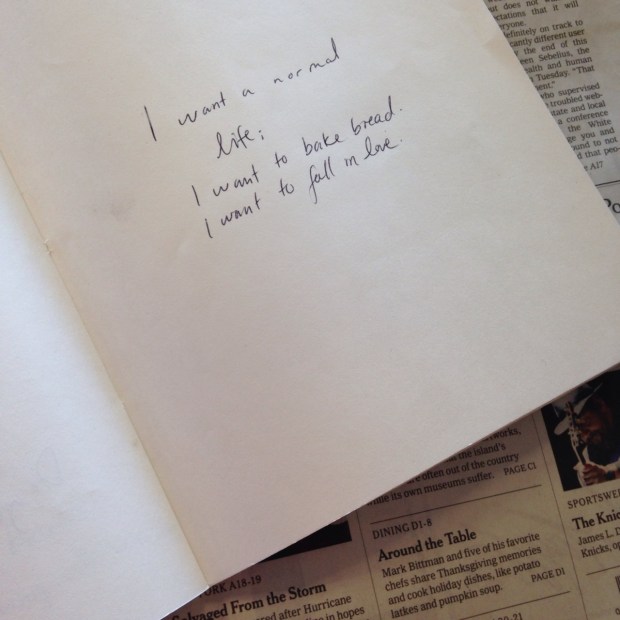 I want a normal
life;
I want to bake bread.
I want to fall in love.
does not
ctations that it will
ryone.
definitely on track to
cantly different user
the end of this
een Sebelius, the
alth and human
Tuesday. "That
ent."
who supervised
troubled web-
tate and local
a conference
the White
ge you and
ound to not
d that peo-
A17
Po
works,
the island's
often out of the country
while its own museums suffer. PAGE C1
DINING D1-8
Around the Table
Mark Bittman and five of his favorite
chefs share Thanksgiving memories
and cook holiday dishes, like potato
latkes and pumpkin soup. PAGE D1
SPORTSWE
The Knic
James L. D
Knicks, op
YORK A18-19
Salvaged From the Storm
ed after Hurricane
e in hopes
20-21